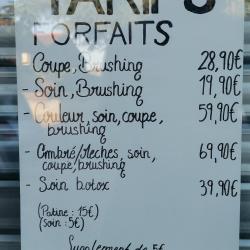 TARIFS
FORFAITS
- Coupe, Brushing 28,90€
- Soin, Brushing 19,90€
- Couleur, soin, coupe, 59,90€
brushing
- Ombré/Meches, soin, 69,90€
coupe, brushing
- Soin botox 39,90€
(Patine : 15€)
(soin : 5€)
Supplement de 5€